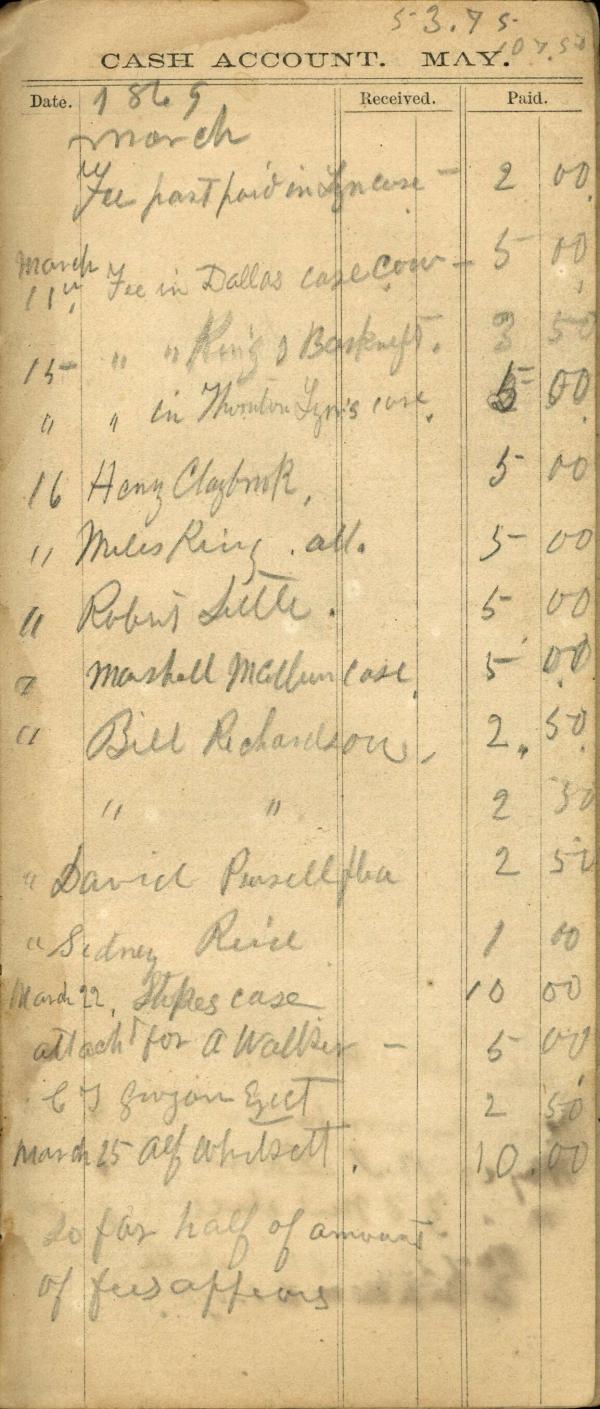 53.75
107.50
CASH ACCOUNT. MAY.
Date. 1869 Received. Paid.
March
Fee part paid in Lyn case - 2 00
March
11th, Fee in Dallas case Cow - 5 00
15 " " King & 3 50
" " in Thornton Lyn's case. 5 00
16 Henry Claybrook, 5 00
" Miles King . att. 5 00
" Robert Little . 5 00
" Marshall case. 5 00
" Bill Richardson, 2 50
" " 2 50
" David 2 50
" Sidney Reid 1 00
March 22, Stokes case 10 00
attacht for A Walker - 5 00
Eject 2 50
March 25 Alf Whitsett. 10.00
So far half of amount
of fees appears